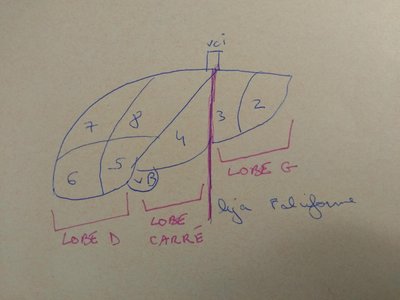 vci
7 8 3 2
6 5 4
VB
LOBE G
LOBE D
LOBE CARRÉ